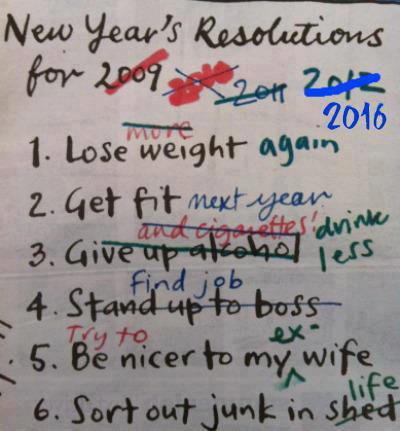 New Year's Resolutions
for 2009 2011 2012
2016
more
1. Lose weight again
2. Get fit next year
and cigarettes! drink
3. Give up alcohol less
find job
4. Stand up to boss
Try to ex-
5. Be nicer to my wife
life
6. Sort out junk in shed